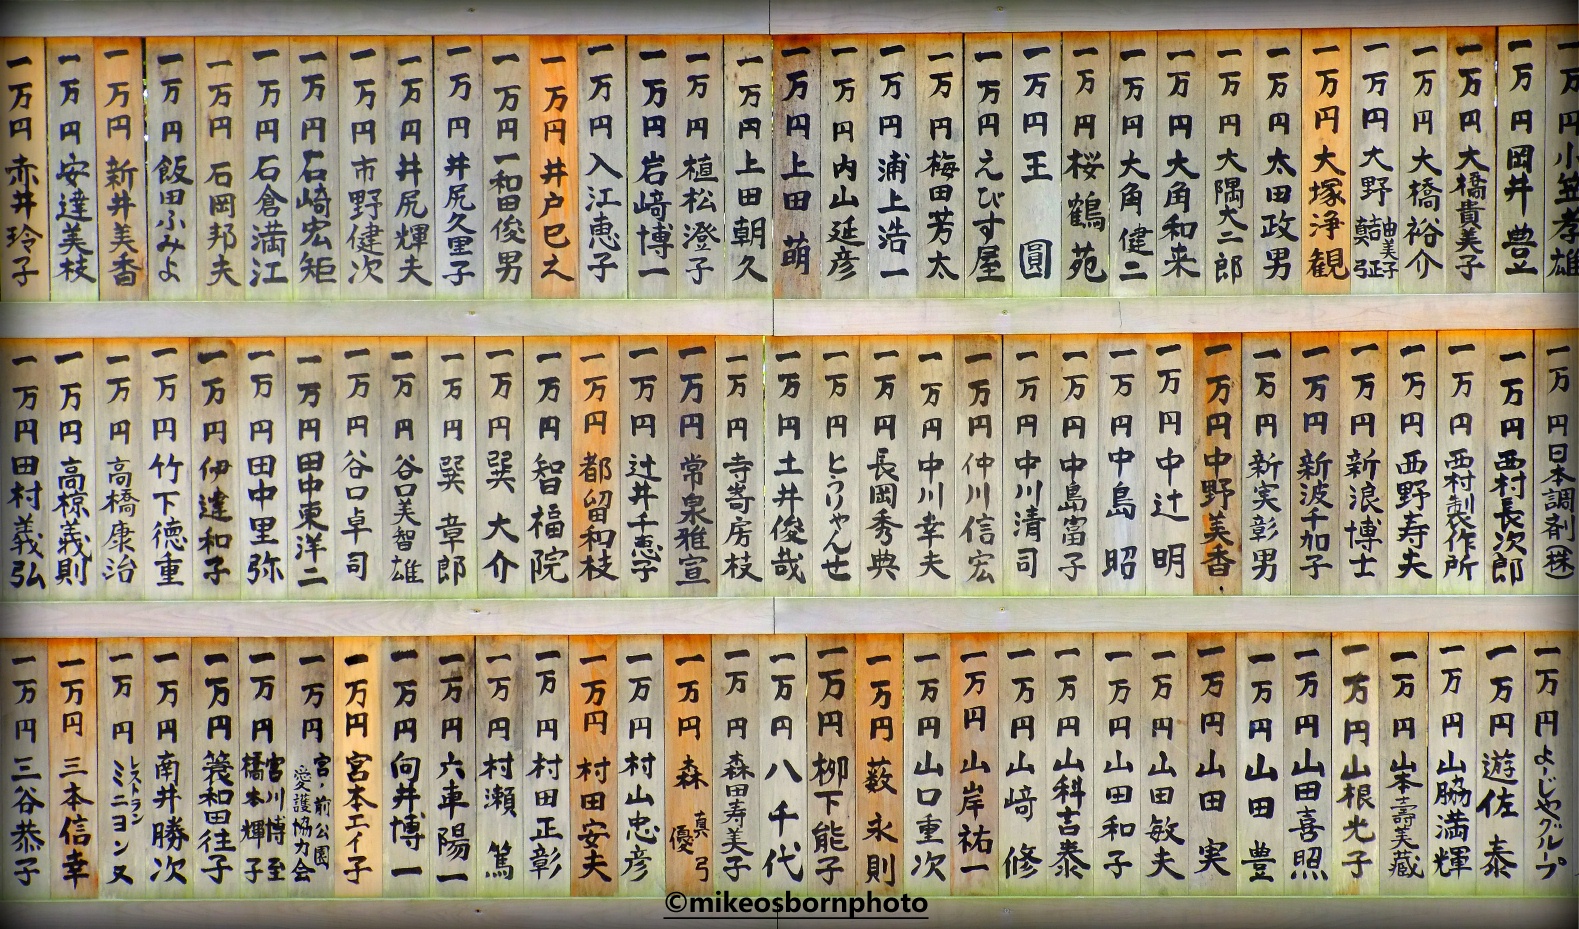 一万円 赤井玲子
一万円 安達美枝
一万円 新井美香
一万円 飯田ふみよ
一万円 石岡邦夫
一万円 石倉満江
一万円 石崎宏矩
一万円 市野健次
一万円 井尻輝夫
一万円 井尻久里子
一万円 一和田俊男
一万円 井戸巳之
一万円 入江恵子
一万円 岩﨑博一
一万円 植松澄子
一万円 上田朝久
一万円 上田 萌
一万円 内山延彦
一万円 浦上浩一
一万円 梅田芳太
一万円 えびす屋
一万円 王 圓
一万円 桜鶴苑
一万円 大角健二
一万円 大角和来
一万円 大隅大二郎
一万円 太田政男
一万円 大塚浄観
一万円 大野 由美子
一万円 大橋裕介
一万円 大橋貴美子
一万円 岡井 豊
一万円 小笠孝雄
一万円 田村義弘
一万円 高椋義則
一万円 高橋康治
一万円 竹下徳重
一万円 伊達和子
一万円 田中里弥
一万円 田中東洋二
一万円 谷口卓司
一万円 谷口美智雄
一万円 巽 章郎
一万円 巽 大介
一万円 智福院
一万円 都留和枝
一万円 辻井千恵子
一万円 常泉雅宣
一万円 寺嵜房枝
一万円 土井俊哉
一万円 とうりゃんせ
一万円 長岡秀典
一万円 中川幸夫
一万円 仲川信宏
一万円 中川清司
一万円 中島富子
一万円 中島 昭
一万円 中辻 明
一万円 中野美香
一万円 新実彰男
一万円 新波千加子
一万円 新浪博士
一万円 西野寿夫
一万円 西村製作所
一万円 西村長次郎
一万円 日本調剤(株)
一万円 三谷恭子
一万円 三本信幸
一万円 レストラン ミニヨンヌ
一万円 南井勝次
一万円 簑和田往子
一万円 宮川博至 橋本輝子
一万円 宮ノ前公園 愛護協力会
一万円 宮本エイ子
一万円 向井博一
一万円 六車陽一
一万円 村瀬 篤
一万円 村田正彰
一万円 村田安夫
一万円 村山忠彦
一万円 森 真弓 優
一万円 森田寿美子
一万円 八千代
一万円 柳下能子
一万円 薮 永則
一万円 山口重次
一万円 山岸祐一
一万円 山﨑 修
一万円 山科吉泰
一万円 山田和子
一万円 山田敏夫
一万円 山田 実
一万円 山田 豊
一万円 山田喜照
一万円 山根光子
一万円 山本壽美蔵
一万円 山脇満輝
一万円 遊佐 泰
一万円 よーじやグループ
©mikeosbornphoto